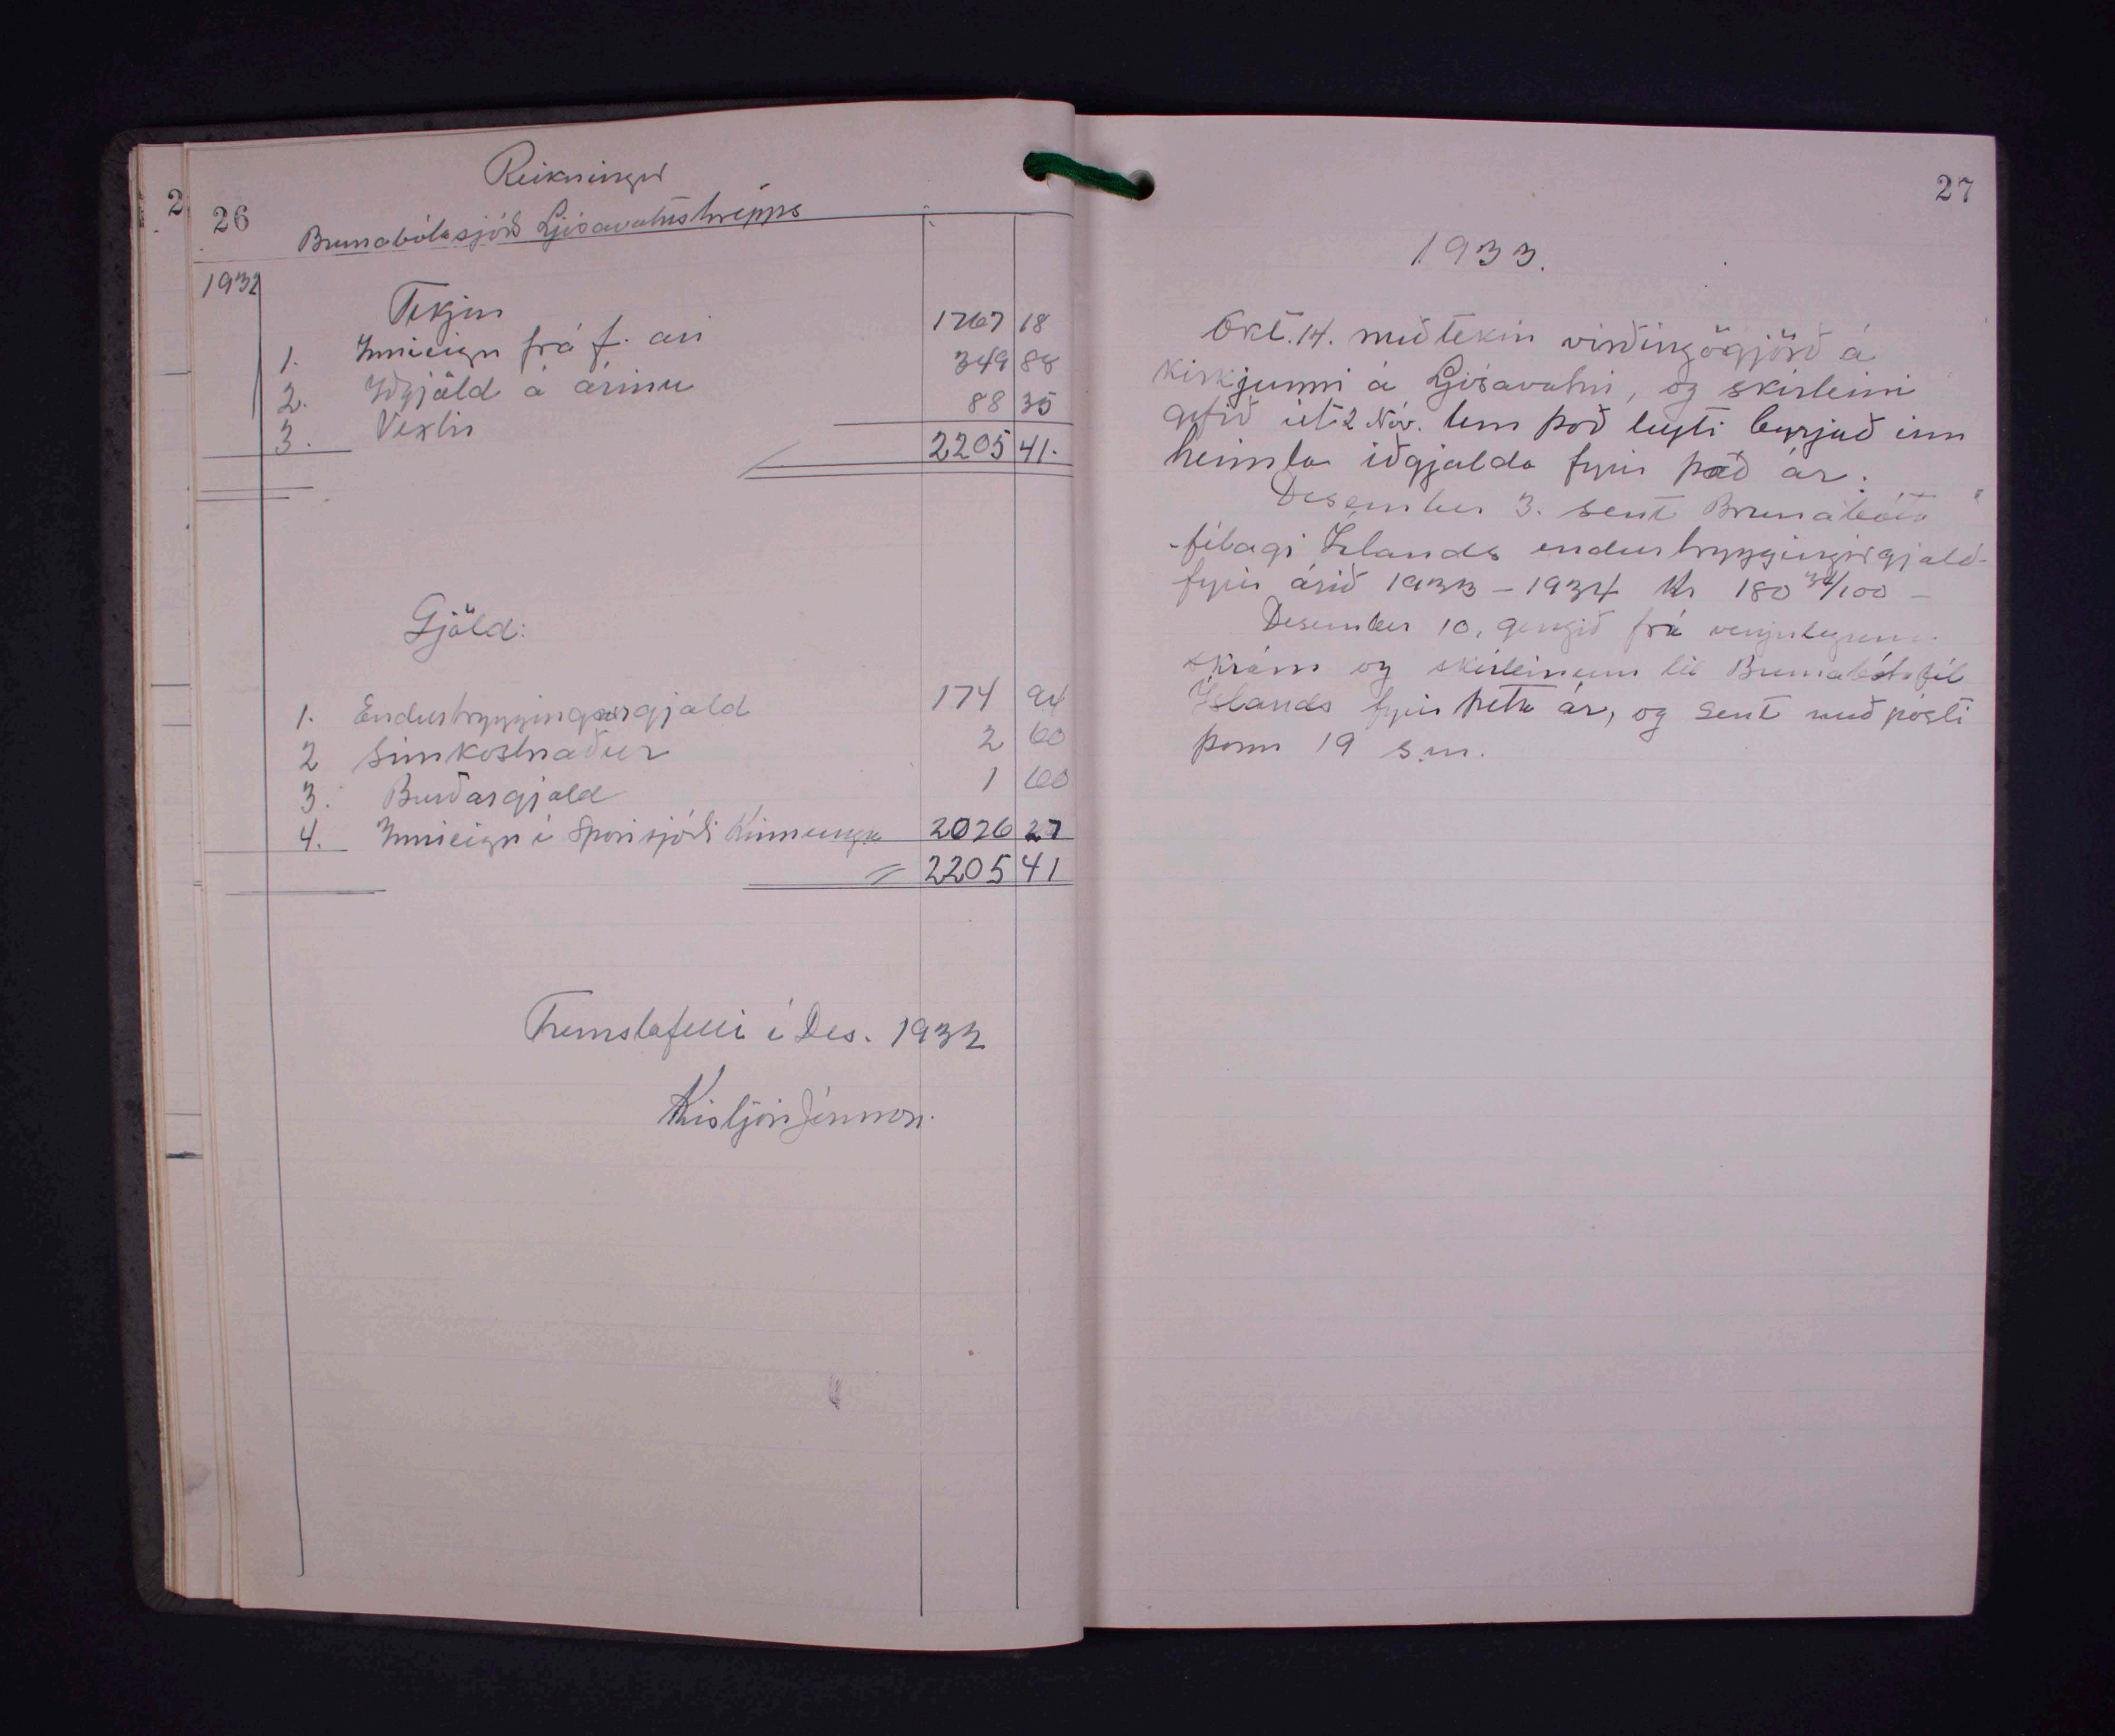 26
Reikningur
Brunabótasjóðs Ljósavatnshrepps
1932
Tekjur
1. Innieign frá f. ári 1767 18
2. Iðgjöld á árinu 349 88
3. Vextir 88 35
2205 41.
Gjöld:
1. Endurtryggingargjald 174 94
2 Símkostnaður 2 60
3. Burðargjald 1 60
4. Innieign í Sparisjóði Kinnunga 2026 27
2205 41
Fremstafelli í Des. 1932
Kristján Jónsson.
2
27
1933.
Okt. 14. meðtekin virðingögjörð á
kirkjunni á Ljósavatni, og skírteini
gefið út 2 Nóv. Um það leyti byrjað inn
heimta iðgjalda fyrir það ár.
Desember 3. sent Brunabóta
-félagi Íslands endurtryggingargjald
fyrir árið 1933 - 1934 Kr 180 34/100 -
Desember 10, gengið frá venjulegum
skrám og skírteinum til Brunabótafél
Íslands fyrir þetta ár, og sent með pósti
þann 19 s.m.